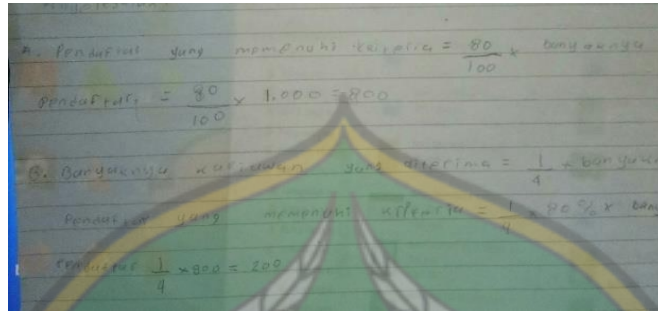 A. Pendaftar yang memenuhi kriteria = 80/100 x banyaknya
pendaftar = 80/100 x 1.000 = 800
B. Banyaknya karyawan yang diterima = 1/4 x banyak
pendaftar yang memenuhi kriteria = 1/4 x 80% x
pendaftar 1/4 x 800 = 200